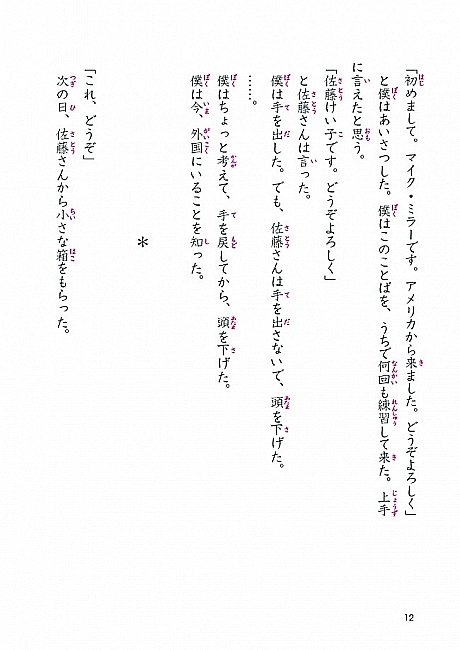 「初めまして。マイク・ミラーです。アメリカから来ました。どうぞよろしく」
と僕はあいさつした。僕はこのことばを、うちで何回も練習して来た。上手
に言えたと思う。
「佐藤けい子です。どうぞよろしく」
と佐藤さんは言った。
僕は手を出した。でも、佐藤さんは手を出さないで、頭を下げた。
……。
僕はちょっと考えて、手を戻してから、頭を下げた。
僕は今、外国にいることを知った。
＊
「これ、どうぞ」
次の日、佐藤さんから小さな箱をもらった。
12